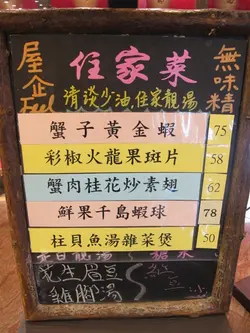 住家菜
無味精
清淡少油,住家靚湯
屋企
蟹子黃金蝦 75
彩椒火龍果斑片 58
蟹肉桂花炒素翅 62
鮮果千島蝦球 78
柱貝魚湯雜菜煲 50
是日靚湯
糖水
花生眉豆
雞腳湯
紅豆沙